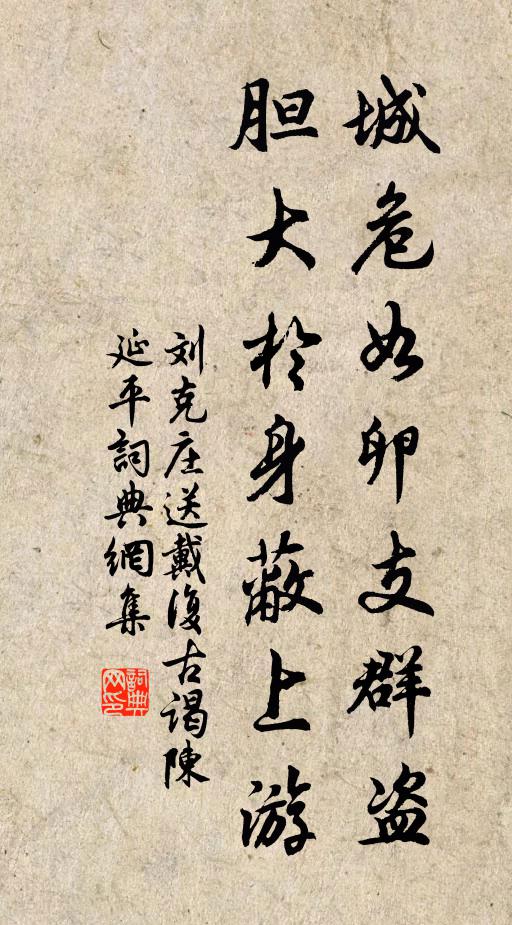 城危如卵支群盗
胆大於身蔽上游
刘克庄送戴復古謁陳
延平詞典網集
詞典
网印